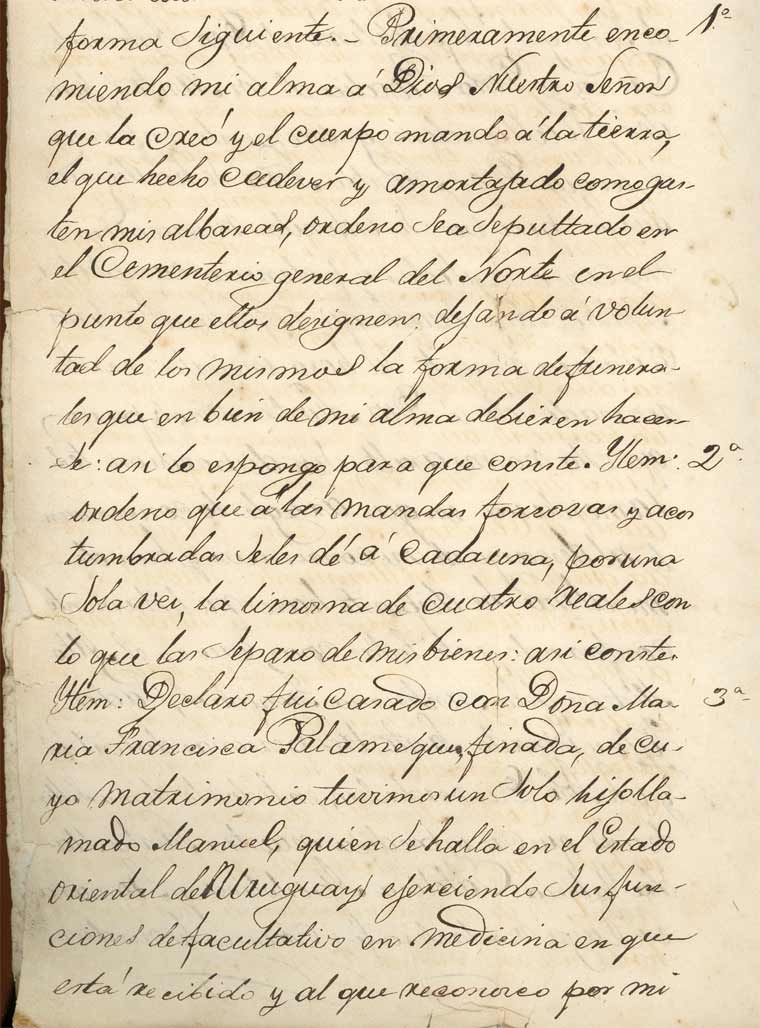 forma siguiente.- Primeramente enco- 1º
miendo mi alma á Dios Nuestro Señor
que la creó y el cuerpo mando á la tierra,
el que hecho cadever y amortajado como gus-
ten mis albaseas, ordeno sea sepultado en
el Cementerio general del Norte en el
punto que ellos designen, dejando á volun-
tad de los mismos la forma de funera-
les que en bien de mi alma debieren hacer-
se: asi lo espongo para que conste. Ytem: 2ª
ordeno que á las mandas forsosas y acos
tumbradas se les dé á cada una, por una
sola ves, la limosna de cuatro reales con
lo que las separo de mis bienes: asi conste.
Ytem: Declaro fui casado con Doña Ma- 3ª
ria Francisca finada, de cu-
yo matrimonio tuvimos un solo hijo lla-
mado Manuel, quien se halla en el Estado
Oriental del Uruguay ejerciendo sus fun-
ciones de facultativo en medicina en que
está recibido y al que reconosco por mi